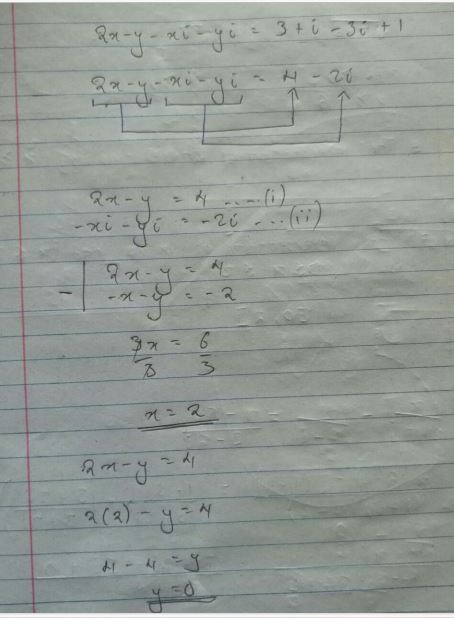 2x-y-xi-yi = 3+i-3i+1
2x-y-xi-yi = 4-2i
2x-y = 4 ----(i)
-xi-yi = -2i ---(ii)
2x-y = 4
- | -x-y = -2
3x/3 = 6/3
x = 2
2x-y = 4
2(2)-y = 4
4-4 = y
y = 0